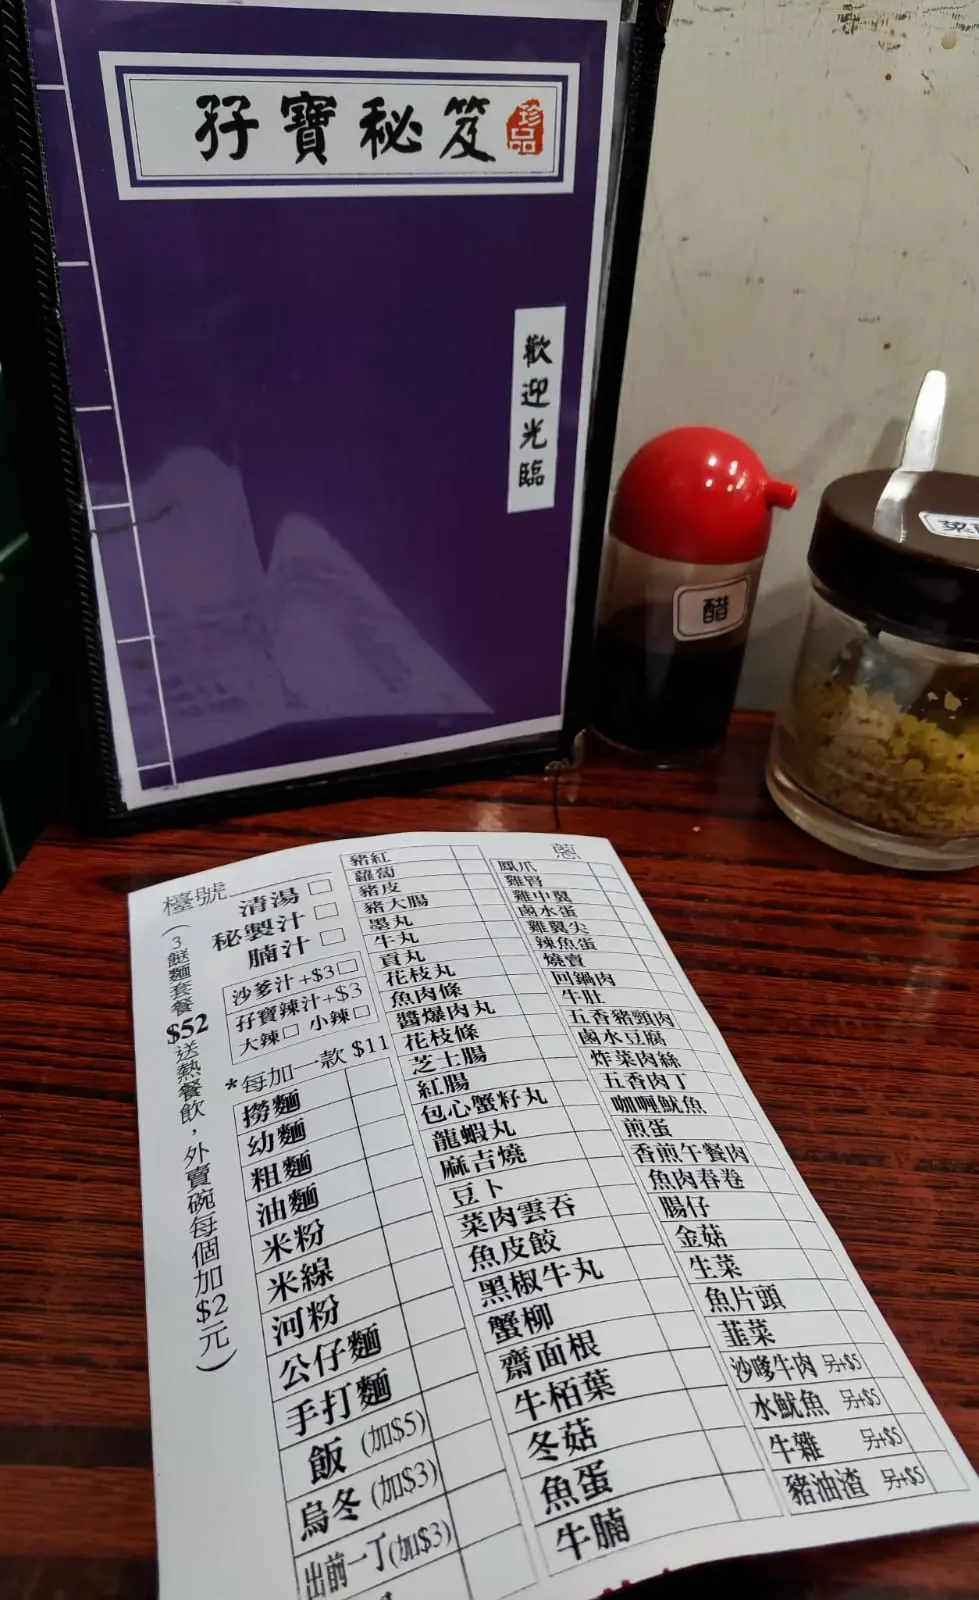 孖寶秘笈
珍品
歡迎光臨
醋
檯號
清湯
秘製汁
腩汁
沙爹汁+$3
孖寶辣汁+$3
大辣 小辣
(3餸麵套餐$52送熱餐飲,外賣碗每個加$2元)
*每加一款$11
撈麵
幼麵
粗麵
油麵
米粉
米線
河粉
公仔麵
手打麵
飯(加$5)
烏冬(加$3)
出前一丁(加$3)
豬紅
蘿蔔
豬皮
豬大腸
墨丸
牛丸
貢丸
花枝丸
魚肉條
醬爆肉丸
花枝條
芝士腸
紅腸
包心蟹籽丸
龍蝦丸
麻吉燒
豆卜
菜肉雲吞
魚皮餃
黑椒牛丸
蟹柳
齋面根
牛栢葉
冬菇
魚蛋
牛腩
蔥
鳳爪
雞腎
雞中翼
鹵水蛋
雞翼尖
辣魚蛋
燒賣
回鍋肉
牛肚
五香豬頸肉
鹵水豆腐
炸菜肉絲
五香肉丁
咖喱魷魚
煎蛋
香煎午餐肉
魚肉春卷
腸仔
金菇
生菜
魚片頭
韮菜
沙嗲牛肉 另+$5
水魷魚 另+$5
牛雜 另+$5
豬油渣 另+$5